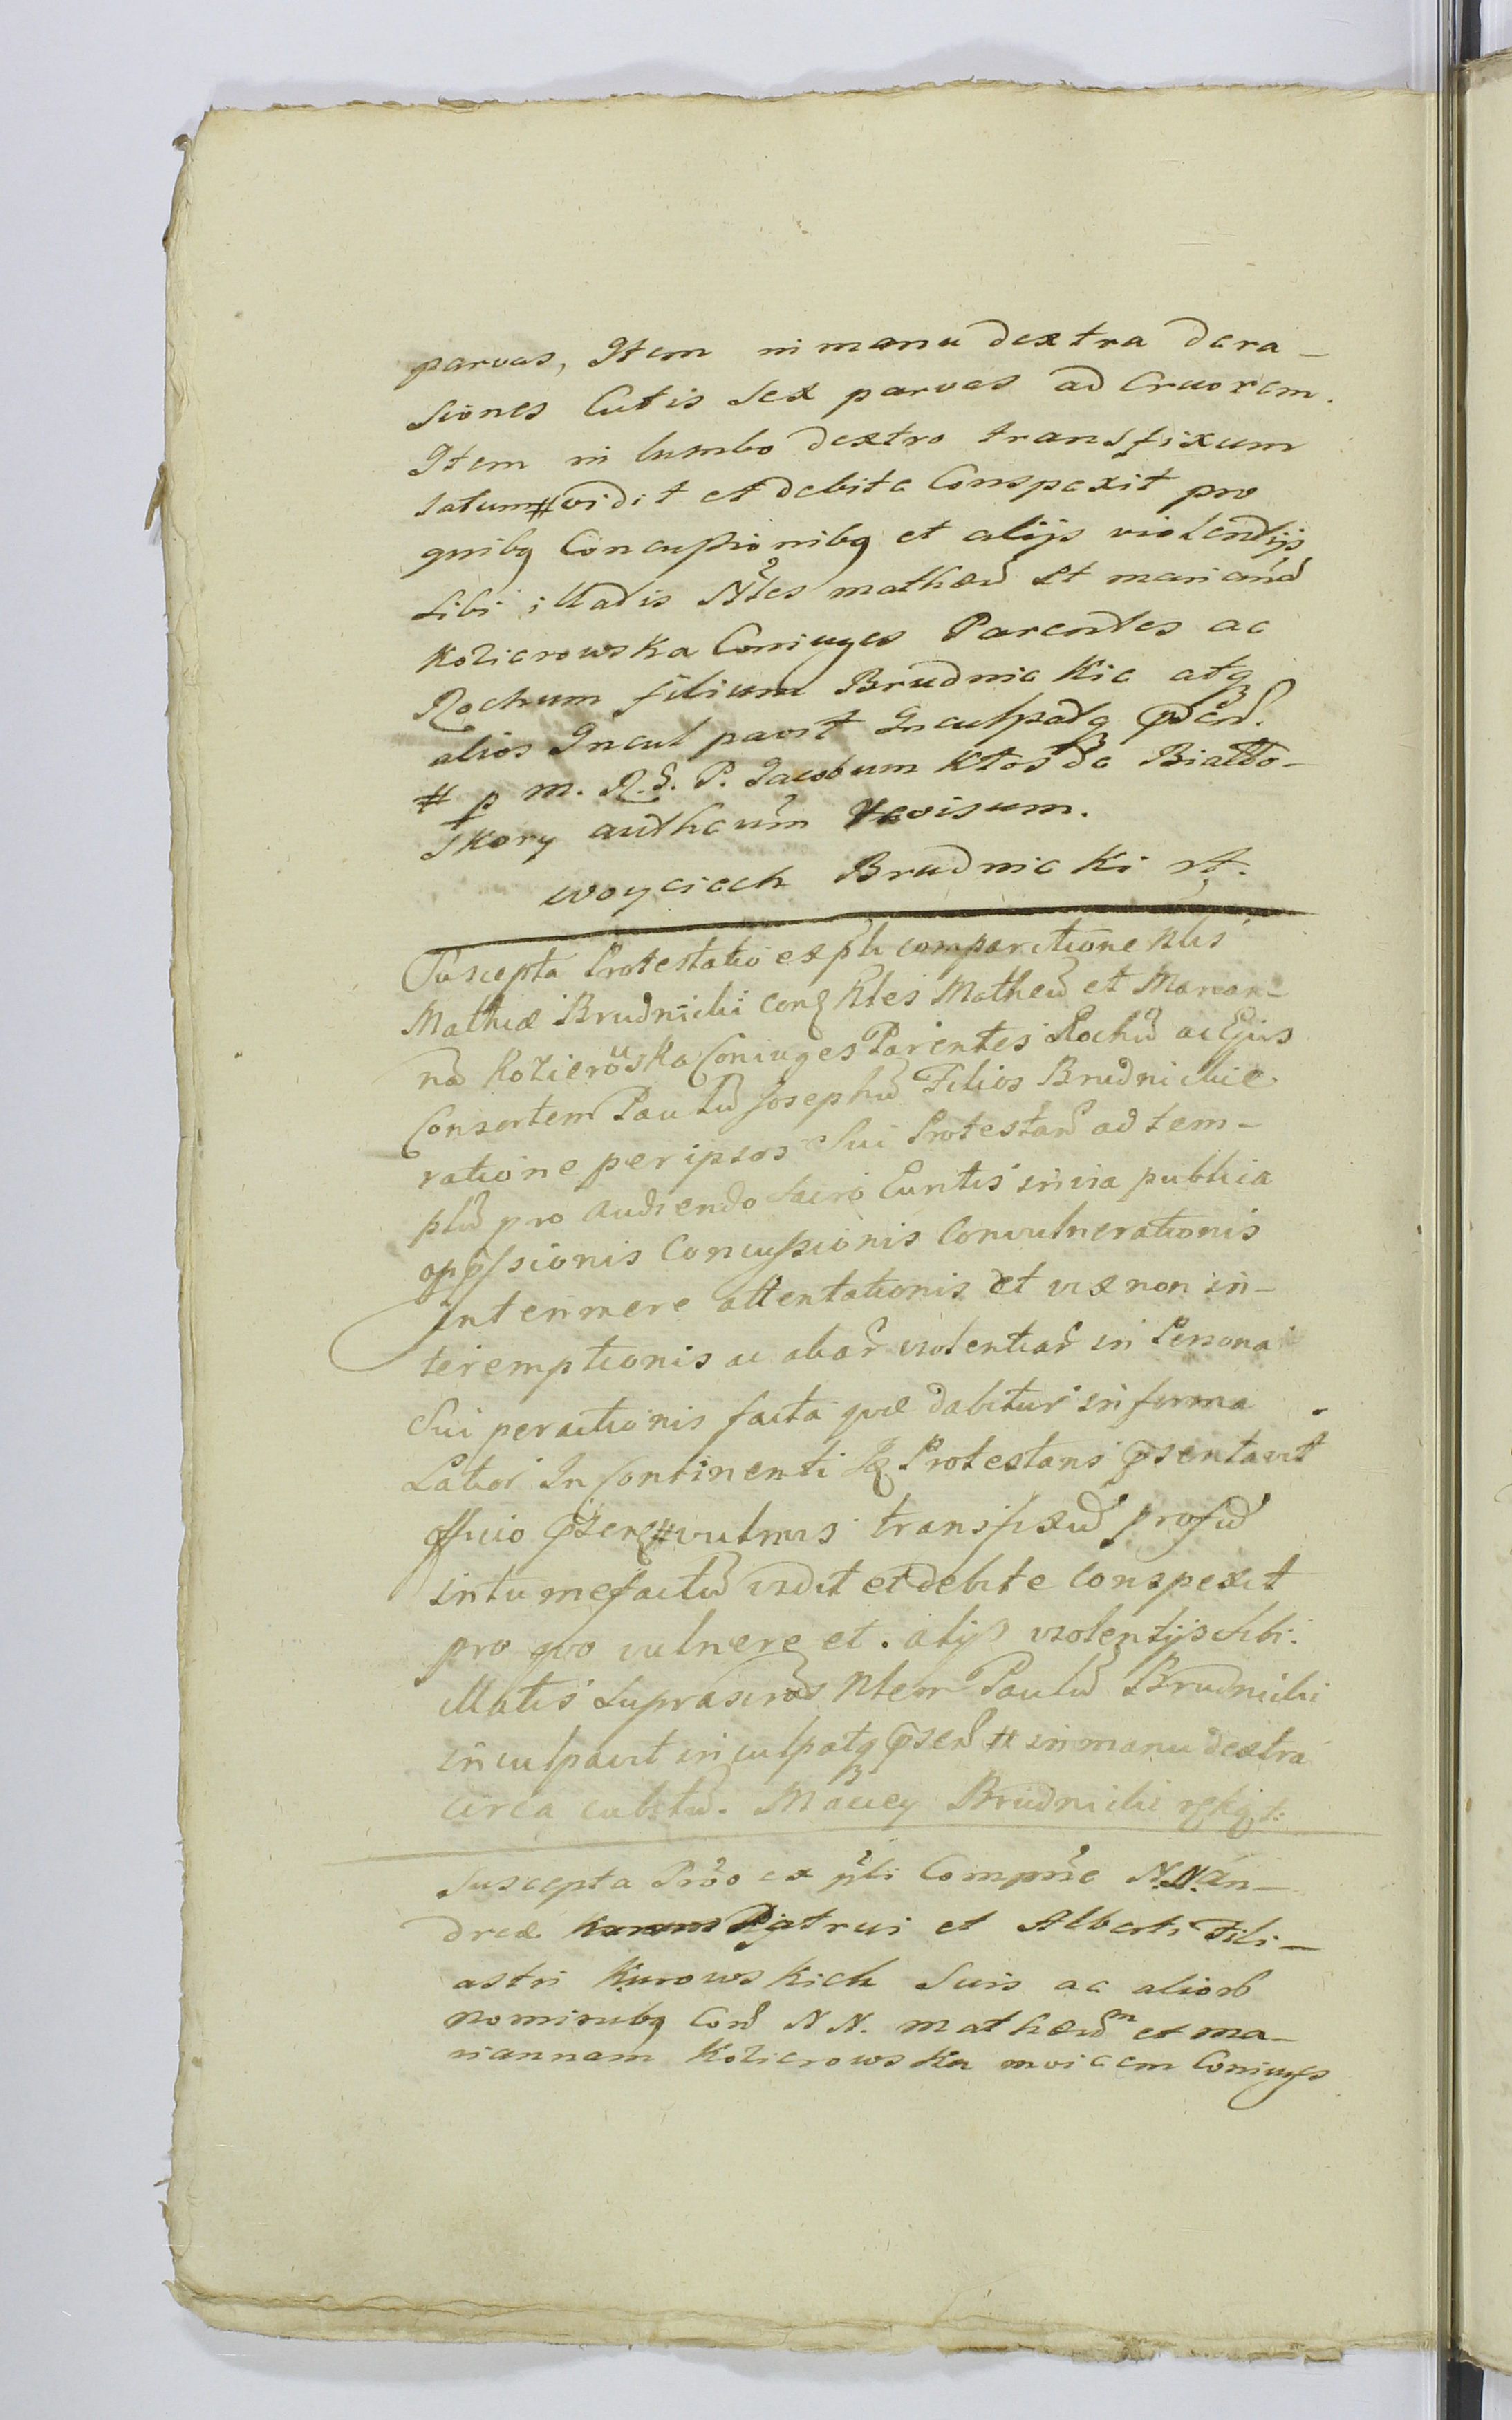 parvas, Item in manu dextra dera-
siones Cutis Sex parvas ad Cruorem.
Item in lumbo dextro transfixum
latum # vidit et debite Conspexit pro
quibq Concussionibq et alijs violentijs
sibi illatis Nbles Mathæu et Mariana
Kozierowska Coniuges Parentes ac
Rochum filium Brudnickie atq
alios Inculpavit Inculpatq
# p m. R. S. P. Jacobum Kłos de Białło-
skory authenm revisum.
Woyciech Brudnicki
Suscepta Protestatio ex psli comparitione Nblis
Mathiæ Brudnicki con Nbles Matheu et Marian-
na Kozierowska Coniuges Parentes Rochu ac Ejus
Consortem Paulu Josephu Filios Brudnickie
ratione per ipsos Sui Protestan ad tem-
plu pro audiendo Sacro Euntis in via publica
oppssionis Concussionis Convulnerationis
Interimere attentationis et vix non in-
teremptionis ac aliar violentiar in Persona
Sui peractionis facta quæ dabitur in forma
Latior In Continenti Protestans psentavit
officio vulnus transfixu profu
intumefactu vidit et debite conspexit
pro quo vulnere et. alijs violentijs sibi
illatis suprascros Nblem Paulu Brudnicki
inculpavit inculpatq psen # in manu dextra
circa cubitu. Maciey Brudnicki
Suscepta Prõo ex psli Comprne N.N. An-
dreæ Patrui et Alberti Fili-
astri Kurowskich Suis ac alior
nominibq Con N N. Mathæum et Ma-
riannam Kozierowska invicem Coniuges